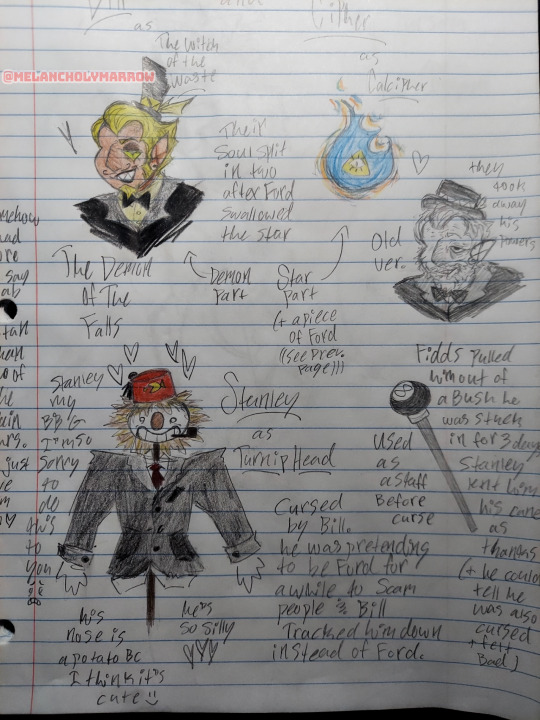 and
Cipher
as
as
The witch
of the
waste
Calcipher
@MELANCHOLYMARROW
Their
Soul split
in two
after Ford
swallowed
the star
they
took
away
his
powers
Old
ver.
The Demon
Of The
Falls
Demon
part
Star
part
(+ a piece
of Ford
((see prev.
page)))
Stanley
my
BBG
I'm so
Sorry
to
do
this
to
you
Stanley
as
Turnip Head
Cursed
by Bill.
he was pretending
to be Ford for
a while to scam
people & Bill
Tracked him down
instead of Ford.
Used
as
a staff
Before
curse
Fidds pulled
him out of
a Bush he
was stuck
in for 3 days
Stanley
lent him
his cane
as
thanks
(+ he could
tell he
was also
cursed
+ felt
Bad)
his
nose is
a potato BC
I think it's
cute
he's
so silly